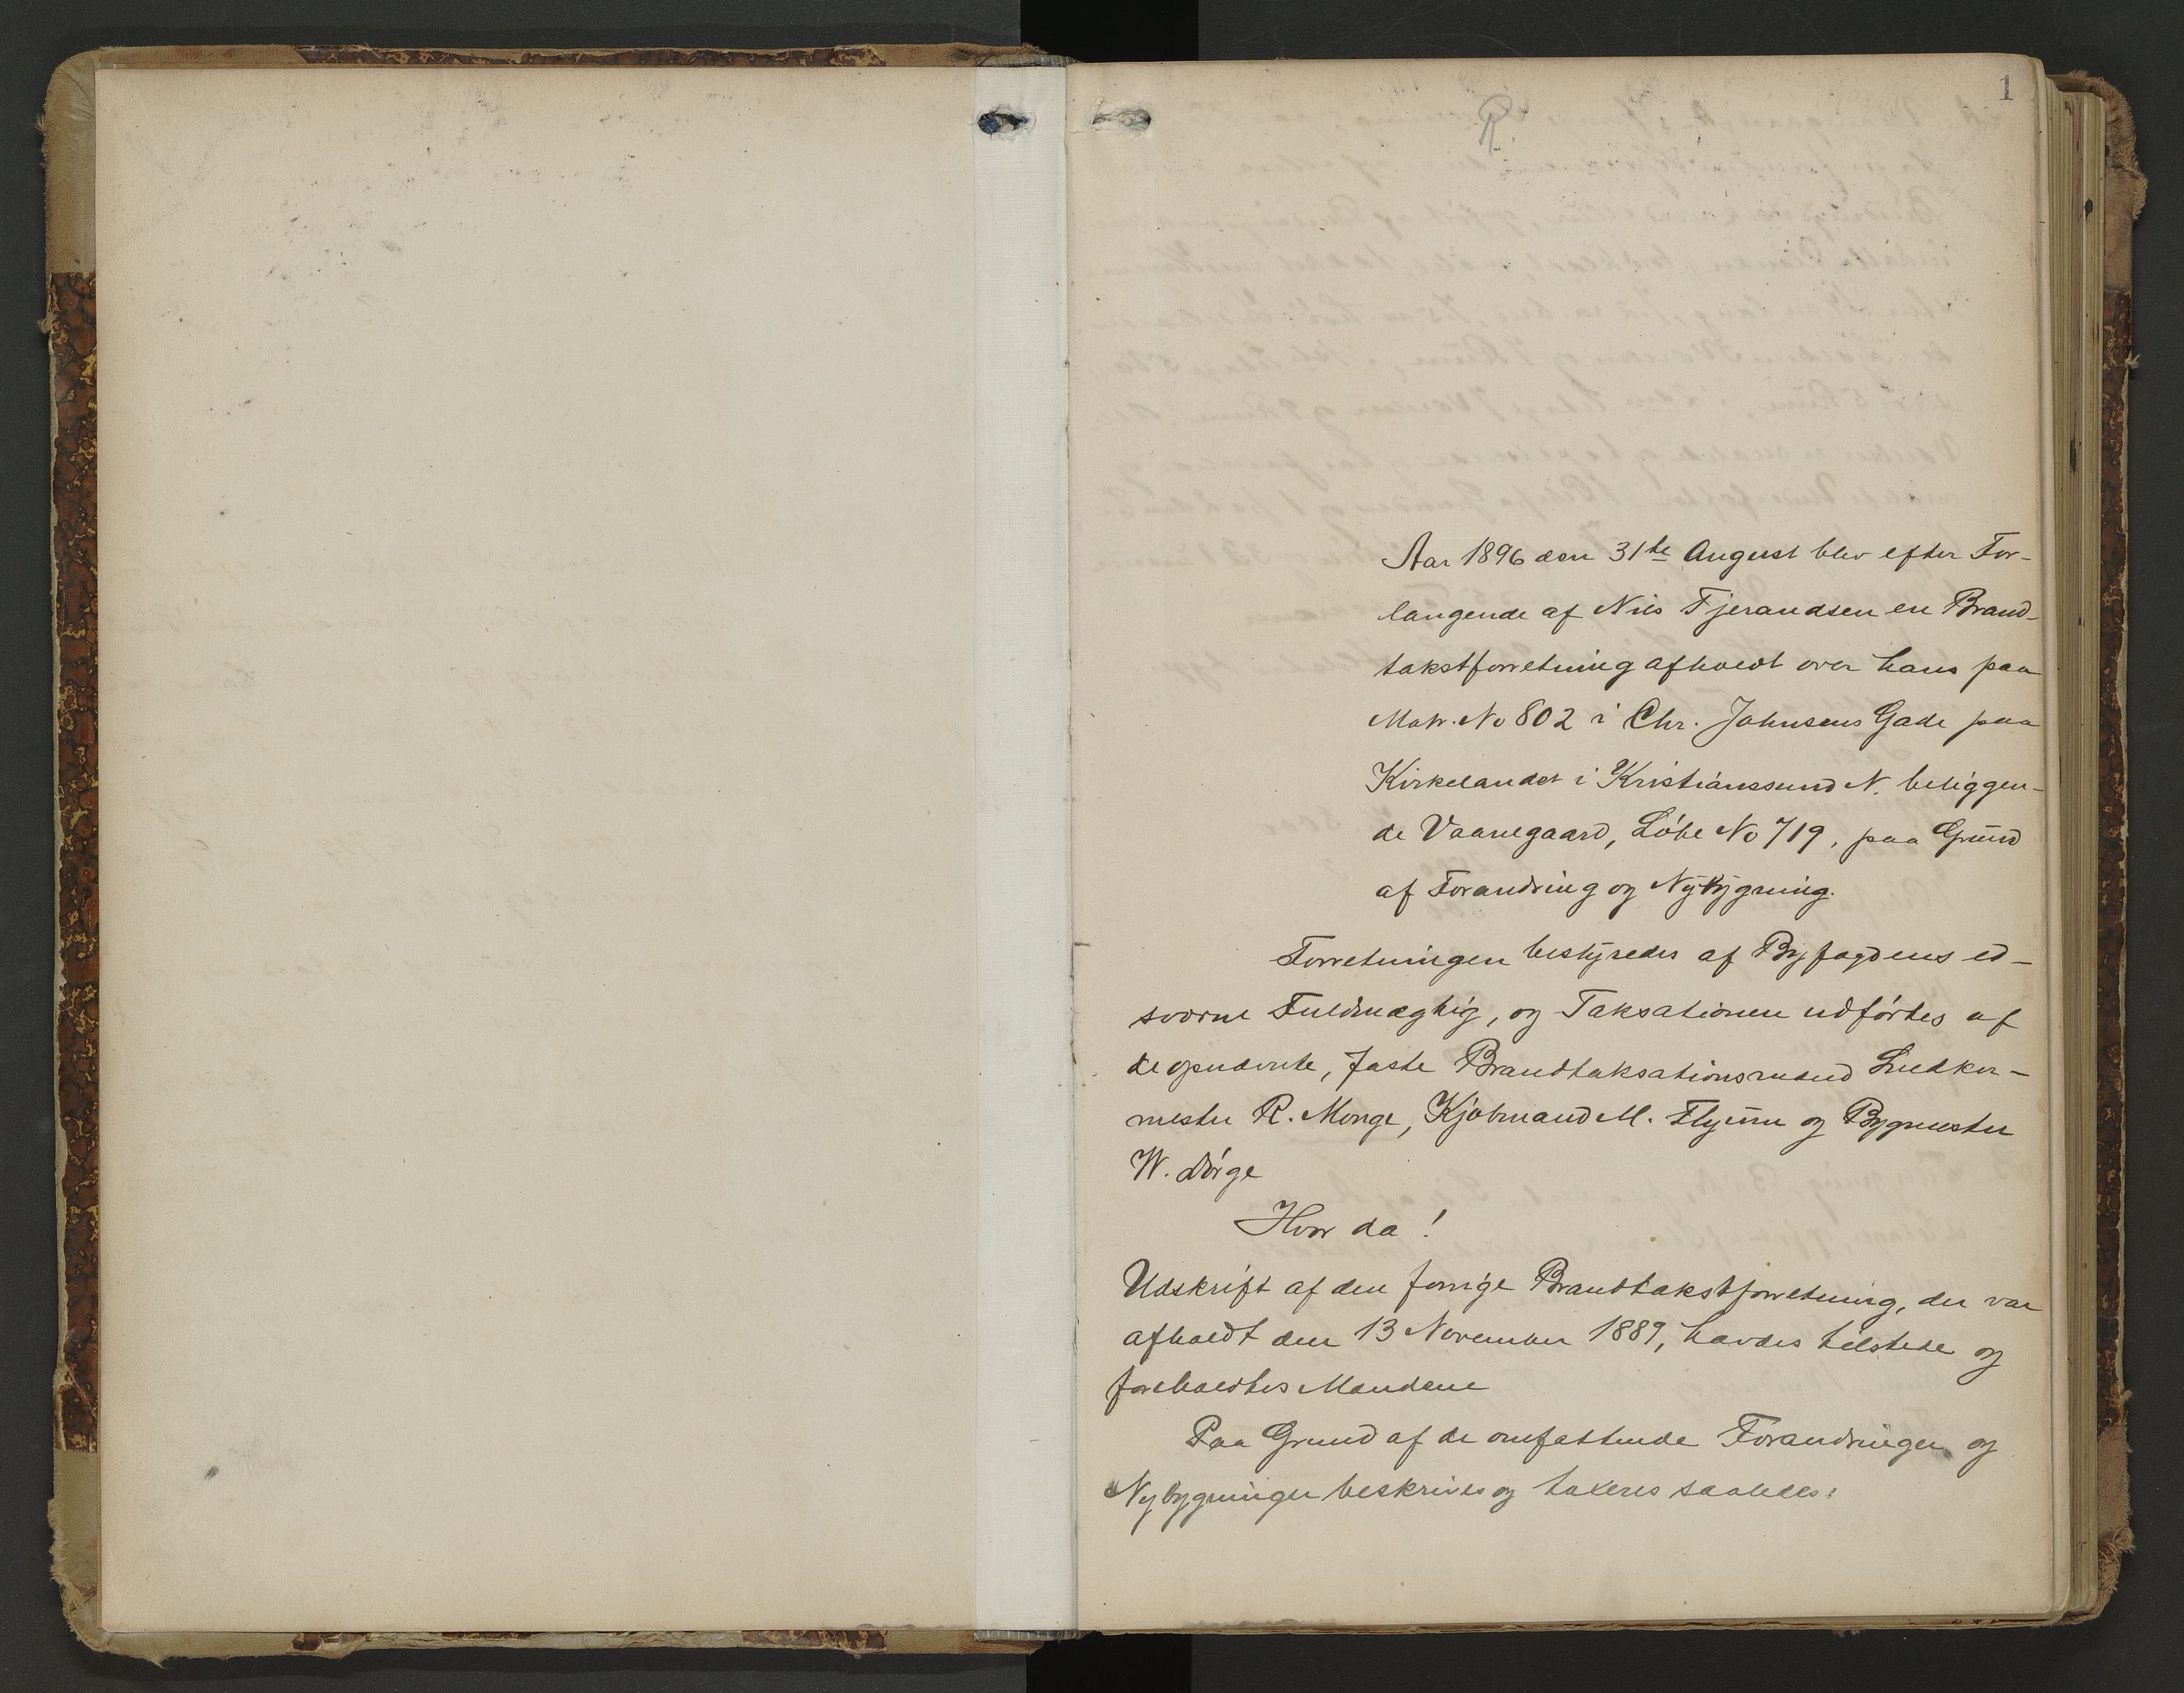 1
R
Aar 1896 den 31te August blev efter For-
langende af Nils Fjerandsen en Brand-
takstforretning afholdt over hans paa
Matr. No 802 i Chr. Johnsens Gade paa
Kirkelandet i Kristianssund N. beliggen-
de Vaanegaard, Løbe No 719, paa Grund
af Forandring og Nybygning.
Forretningen bestyredes af Byfogdens ed-
svorne Fuldmægtig, og Taksationen udførtes af
de opnævnte, faste Brandtaksationsmænd
mester R. Monge, Kjøbmand M. Flyum og Bygmester
W. Dørge
Hvor da!
Udskrift af den forrige Brandtakstforretning, der var
afholdt den 13 November 1889, havdes tilstede og
foreholdtes Mændene
Paa Grund af de omfattende Forandringer og
Nybygninger beskrives og taxeres saaledes: